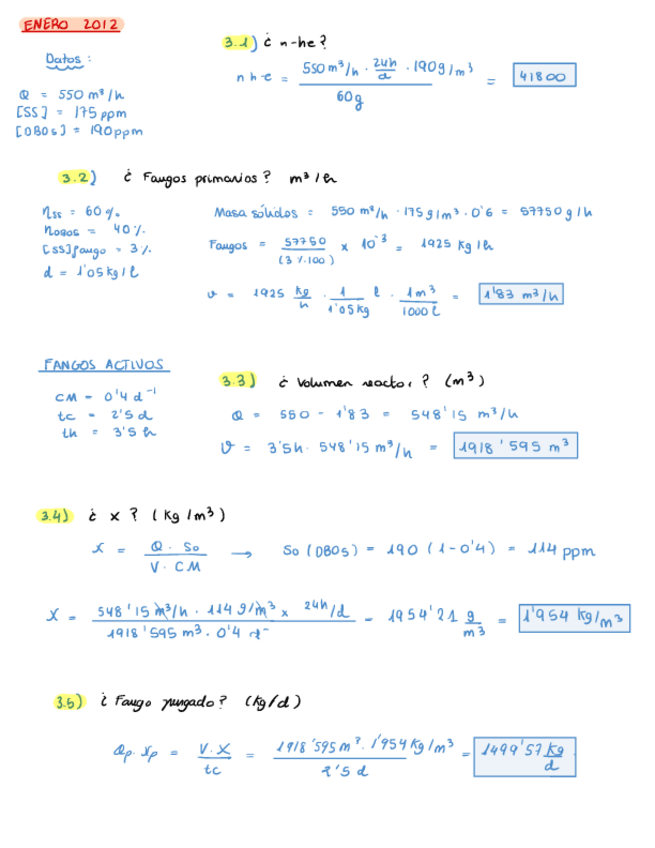 ENERO 2012
Datos:
Q = 550 m³/h
[SS] = 175 ppm
[DBO5] = 190 ppm
3.1) ¿ n-he?
n h-e = 550 m³/h · 24h/d · 190 g/m³ / 60g = 41800
3.2) ¿ Fangos primarios? m³/h
ηss = 60 %
ηDBO5 = 40 %
[SS]fango = 3 %
d = 1'05 kg/l
Masa sólidos = 550 m³/h · 175 g/m³ · 0'6 = 57750 g/h
Fangos = 57750 / (3 %.100) x 10⁻³ = 1925 kg/h
v = 1925 kg/h · 1/1'05kg l · 1m³/1000 l = 1'83 m³/h
FANGOS ACTIVOS
CM = 0'4 d⁻¹
tc = 2'5 d
th = 3'5 h
3.3) ¿ Volumen reactor ? (m³)
Q = 550 - 1'83 = 548'15 m³/h
V = 3'5h · 548'15 m³/h = 1918'595 m³
3.4) ¿ x ? (kg/m³)
X = Q · So / V · CM → So (DBO5) = 190 (1-0'4) = 114 ppm
X = 548'15 m³/h · 114 g/m³ x 24h/d / 1918'595 m³ · 0'4 d⁻ = 1954'21 g/m³ = 1'954 kg/m³
3.5) ¿ Fango purgado ? (kg/d)
Qp · Xp = V·X / tc = 1918'595 m³ · 1'954 kg/m³ / 2'5 d = 1499'57 kg/d